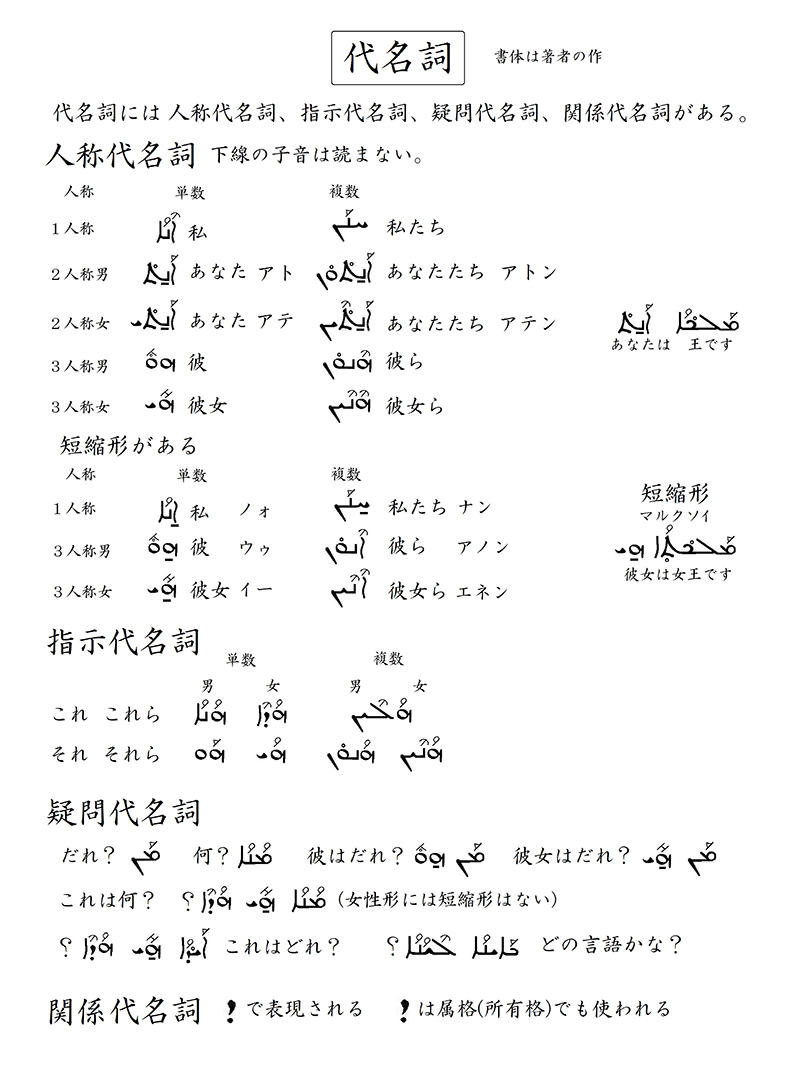 代名詞 書体は著者の作
代名詞には 人称代名詞、指示代名詞、疑問代名詞、関係代名詞がある。
人称代名詞 下線の子音は読まない。
人称 単数 複数
1人称 ܐܶܢܳܐ 私 ܚܢܰܢ 私たち
2人称男 ܐܰܢ̱ܬ あなた アト ܐܰܢ̱ܬܘܢ あなたたち アトン
2人称女 ܐܰܢ̱ܬܝ あなた アテ ܐܰܢ̱ܬܶܝܢ あなたたち アテン
ܡܰܠܟܳܐ ܐܰܢ̱ܬ
あなたは 王です
3人称男 ܗܘ 彼 ܗܢܘܢ 彼ら
3人称女 ܗܝ 彼女 ܗܢܝܢ 彼女ら
短縮形がある
人称 単数 複数
1人称 ܐ̱ܢܳܐ 私 ノォ ܚ̱ܢܰܢ 私たち ナン
3人称男 ܗ̱ܘ 彼 ウゥ ܐܢܘܢ 彼ら アノン
3人称女 ܗ̱ܝ 彼女 イー ܐܢܝܢ 彼女ら エネン
短縮形
マルクソイ
ܡܰܠܟܬܳܐ ܗ̱ܝ
彼女は女王です
指示代名詞
単数 複数
男 女 男 女
これ これら ܗܳܢܳܐ ܗܳܕܶܐ ܗܳܠܶܝܢ
それ それら ܗܰܘ ܗܳܝ ܗܳܢܘܢ ܗܳܢܶܝܢ
疑問代名詞
だれ？ ܡܰܢ 何？ ܡܳܢܳܐ 彼はだれ？ ܡܰܢ ܗ̱ܘ 彼女はだれ？ ܡܰܢ ܗ̱ܝ
これは何？ ܡܳܢܳܐ ܗ̱ܝ ܗܳܕܶܐ؟ (女性形には短縮形はない)
ܐܰܝܕܳܐ ܗ̱ܝ ܗܳܕܶܐ؟ これはどれ？ どの言語かな？
関係代名詞 ܕ で表現される ܕ は属格(所有格)でも使われる